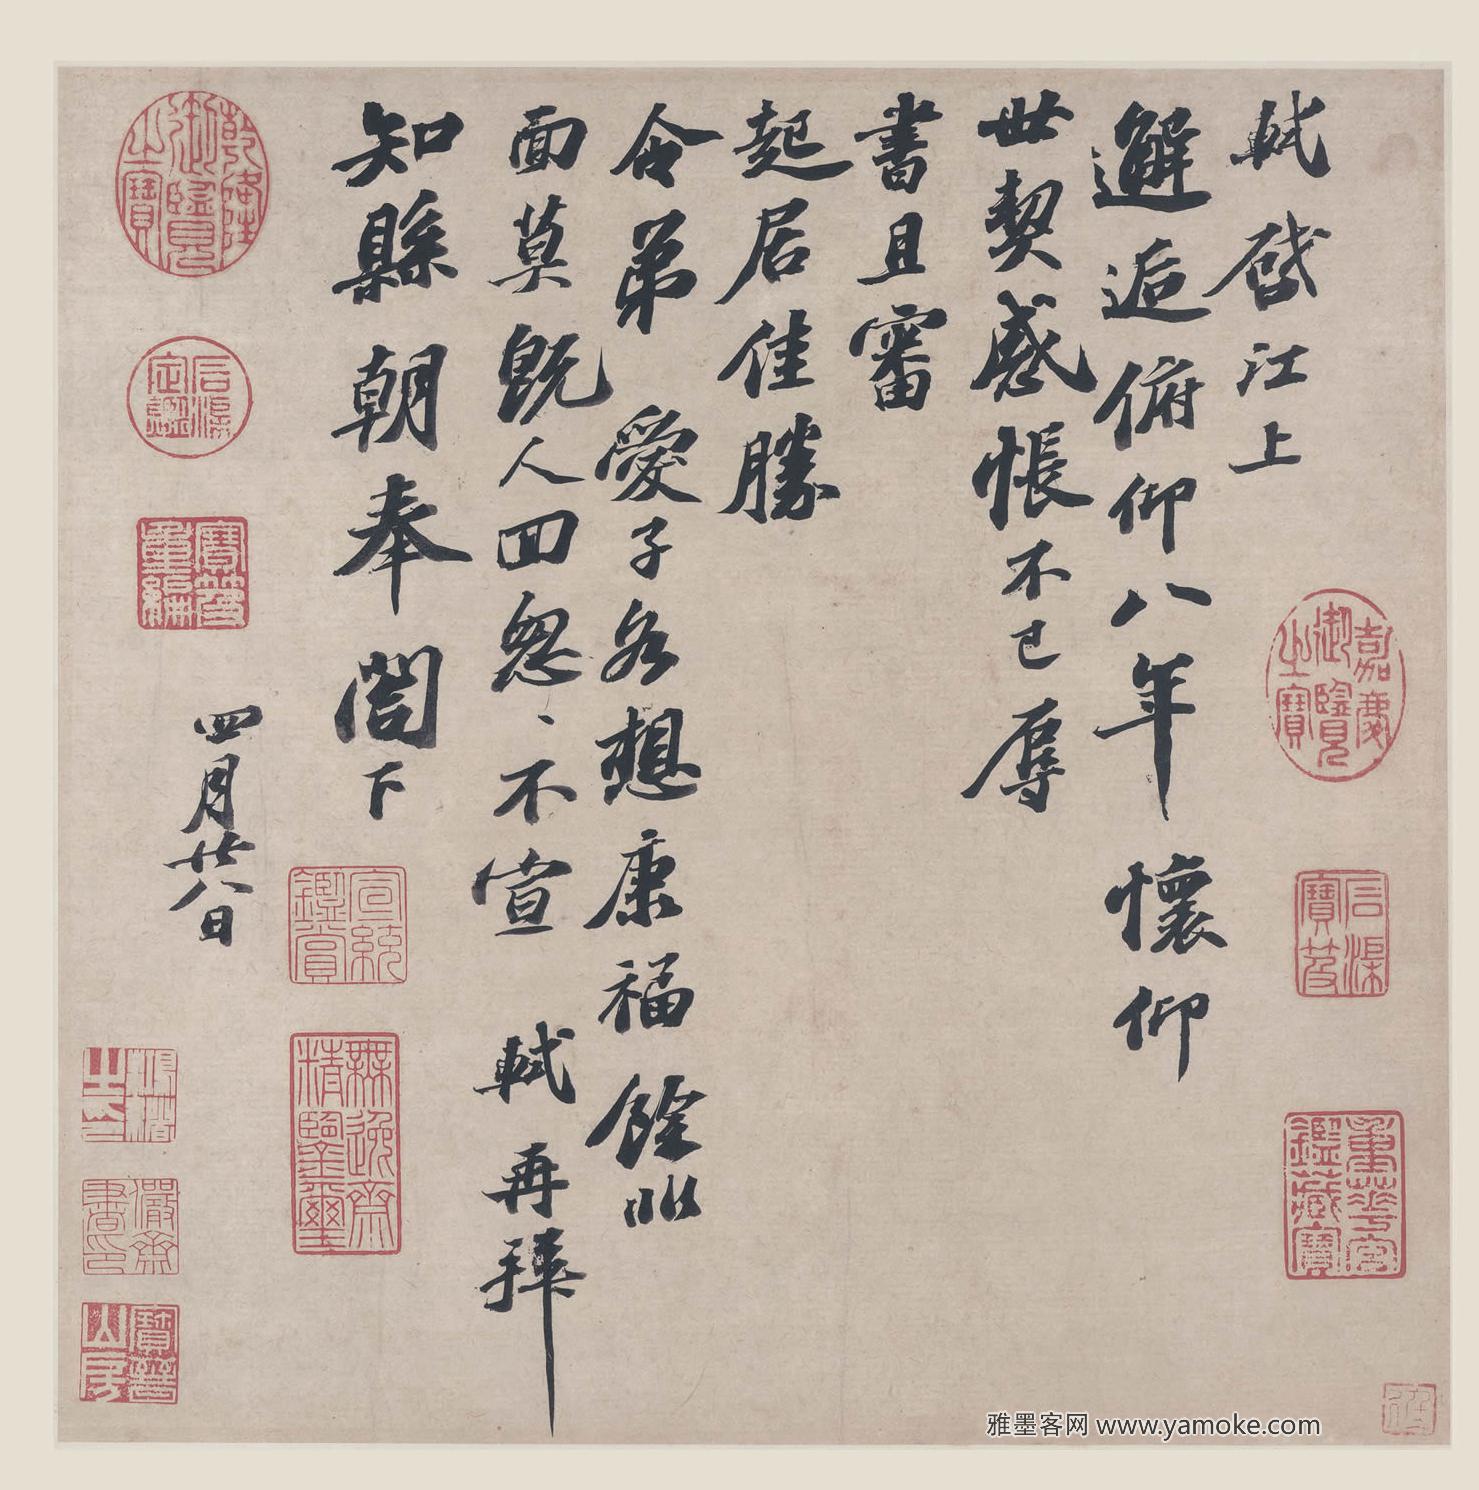 軾啓江上
邂逅俯仰八年懷仰
世契感悵不已辱
書且審
起居佳勝
令弟愛子各想康福餘非
面莫既人回怱〻不宣軾再拜
知縣朝奉閤下
四月廿八日
乾隆御覽之寶
石渠定鑑
寶笈重編
宣統鑑賞
無逸齋精鑒璽
嘉慶御覽之寶
石渠寶笈
重華宮鑑藏寶
雅墨客网 www.yamoke.com